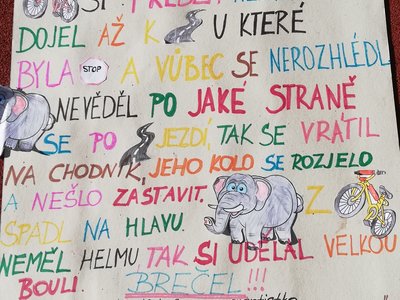 SI
DOJEL AŽ K U KTERÉ
BYLA STOP A VŮBEC SE NEROZHLÉDL
NEVĚDĚL PO JAKÉ STRANĚ
SE PO JEZDÍ, TAK SE VRÁTIL
NA CHODNÍK, JEHO KOLO SE ROZJELO
A NEŠLO ZASTAVIT. Z
SPADL NA HLAVU.
NEMĚL HELMU TAK SI UDĚLAL VELKOU
BOULI. BREČEL!!!